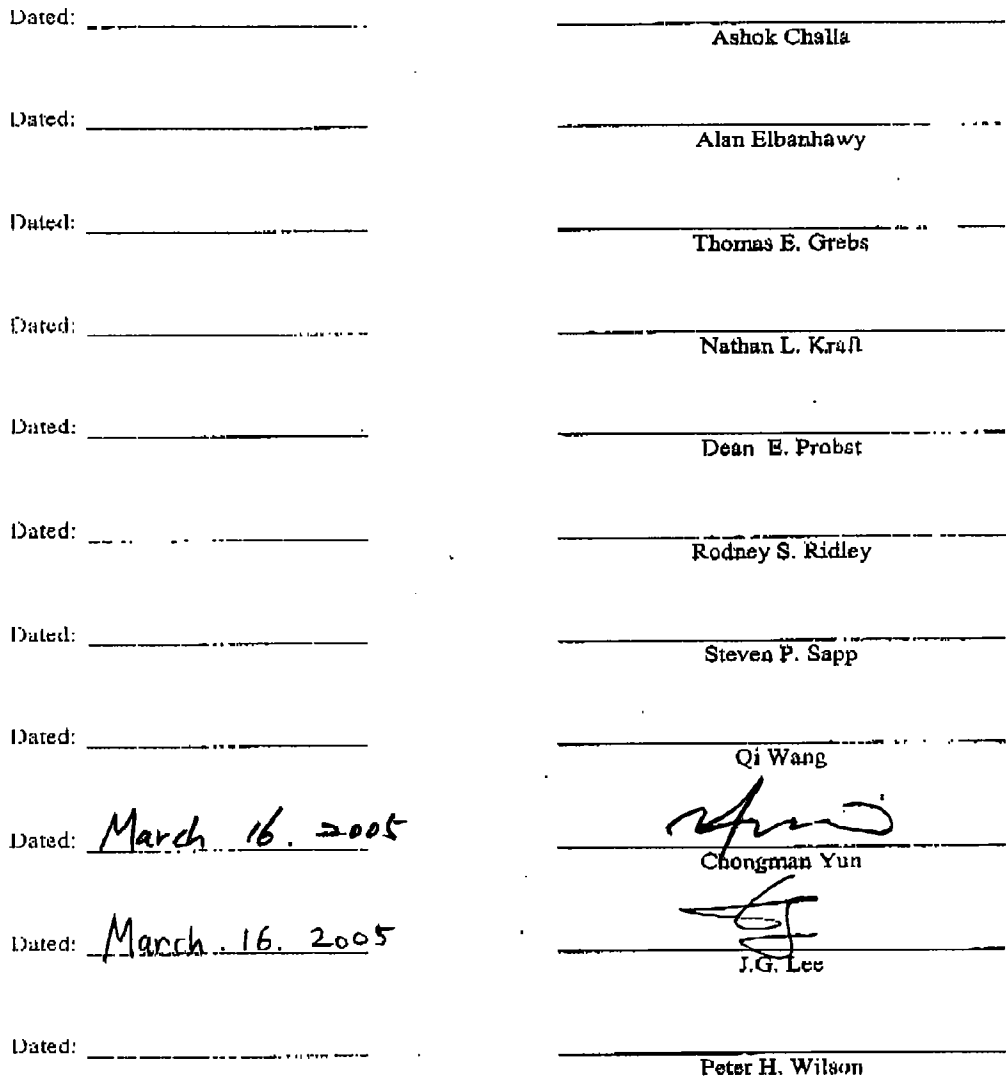 Dated:
Ashok Challa
Dated:
Alan Elbanhawy
Dated:
Thomas E. Grebs
Dated:
Nathan L. Kraft
Dated:
Dean E. Probst
Dated:
Rodney S. Ridley
Dated:
Steven P. Sapp
Dated:
Qi Wang
Dated: March 16. 2005
Chongman Yun
Dated: March. 16. 2005
J.G. Lee
Dated:
Peter H. Wilson